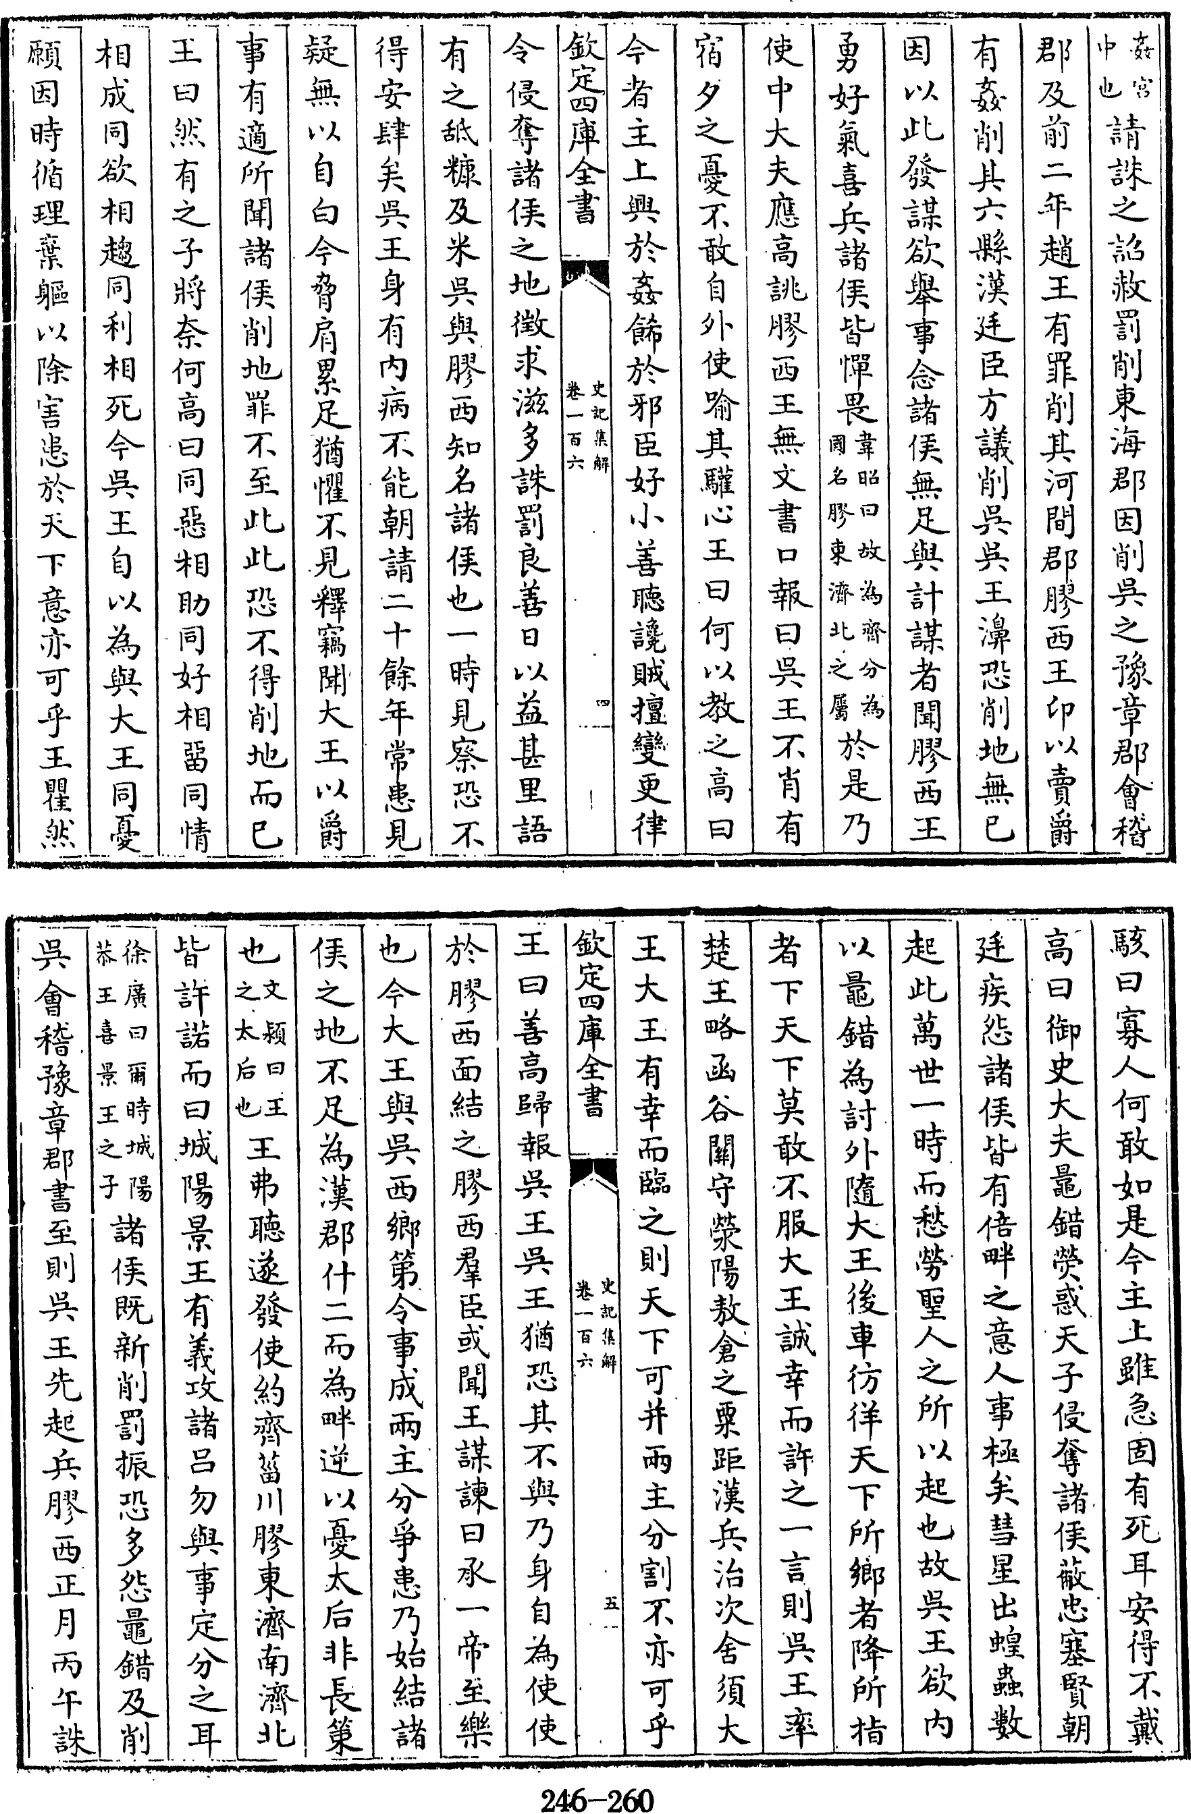 姦宫
中也
請誅之詔赦罰削東海郡因削吳之豫章郡會稽
郡及前二年趙王有罪削其河間郡膠西王卬以賣爵
有姦削其六縣漢廷臣方議削吳吳王濞恐削地無已
因以此發謀欲舉事念諸侯無足與計謀者聞膠西王
勇好氣喜兵諸侯皆憚畏
韋昭曰故為齊分為
國名膠東濟北之屬
於是乃
使中大夫應高誂膠西王無文書口報曰吳王不肖有
宿夕之憂不敢自外使喻其驩心王曰何以教之高曰
今者主上興於姦飾於邪臣好小善聽讒賊擅變更律
欽定四庫全書
史記集解
卷一百六
四
令侵奪諸侯之地徵求滋多誅罰良善日以益甚里語
有之䑛糠及米吳與膠西知名諸侯也一時見察恐不
得安肆矣吳王身有内病不能朝請二十餘年常患見
疑無以自白今脅肩累足猶懼不見釋竊聞大王以爵
事有適所聞諸侯削地罪不至此此恐不得削地而已
王曰然有之子將奈何高曰同惡相助同好相畱同情
相成同欲相趨同利相死今吳王自以為與大王同憂
願因時循理棄軀以除害患於天下意亦可乎王瞿然
駭曰寡人何敢如是今主上雖急固有死耳安得不戴
高曰御史大夫鼂錯熒惑天子侵奪諸侯蔽忠塞賢朝
廷疾怨諸侯皆有倍畔之意人事極矣彗星出蝗蟲數
起此萬世一時而愁勞聖人之所以起也故吳王欲内
以鼂錯為討外隨大王後車彷徉天下所鄉者降所指
者下天下莫敢不服大王誠幸而許之一言則吳王率
楚王略函谷關守滎陽敖倉之粟距漢兵治次舍須大
王大王有幸而臨之則天下可并兩主分割不亦可乎
欽定四庫全書
史記集解
卷一百六
五
王曰善高歸報吳王吳王猶恐其不與乃身自為使使
於膠西面結之膠西羣臣或聞王謀諫曰承一帝至樂
也今大王與吳西鄉第令事成兩主分爭患乃始結諸
侯之地不足為漢郡什二而為畔逆以憂太后非長策
也
文穎曰王
之太后也
王弗聽遂發使約齊菑川膠東濟南濟北
皆許諾而曰城陽景王有義攻諸吕勿與事定分之耳
徐廣曰爾時城陽
恭王喜景王之子
諸侯既新削罰振恐多怨鼂錯及削
吳會稽豫章郡書至則吳王先起兵膠西正月丙午誅
246-260